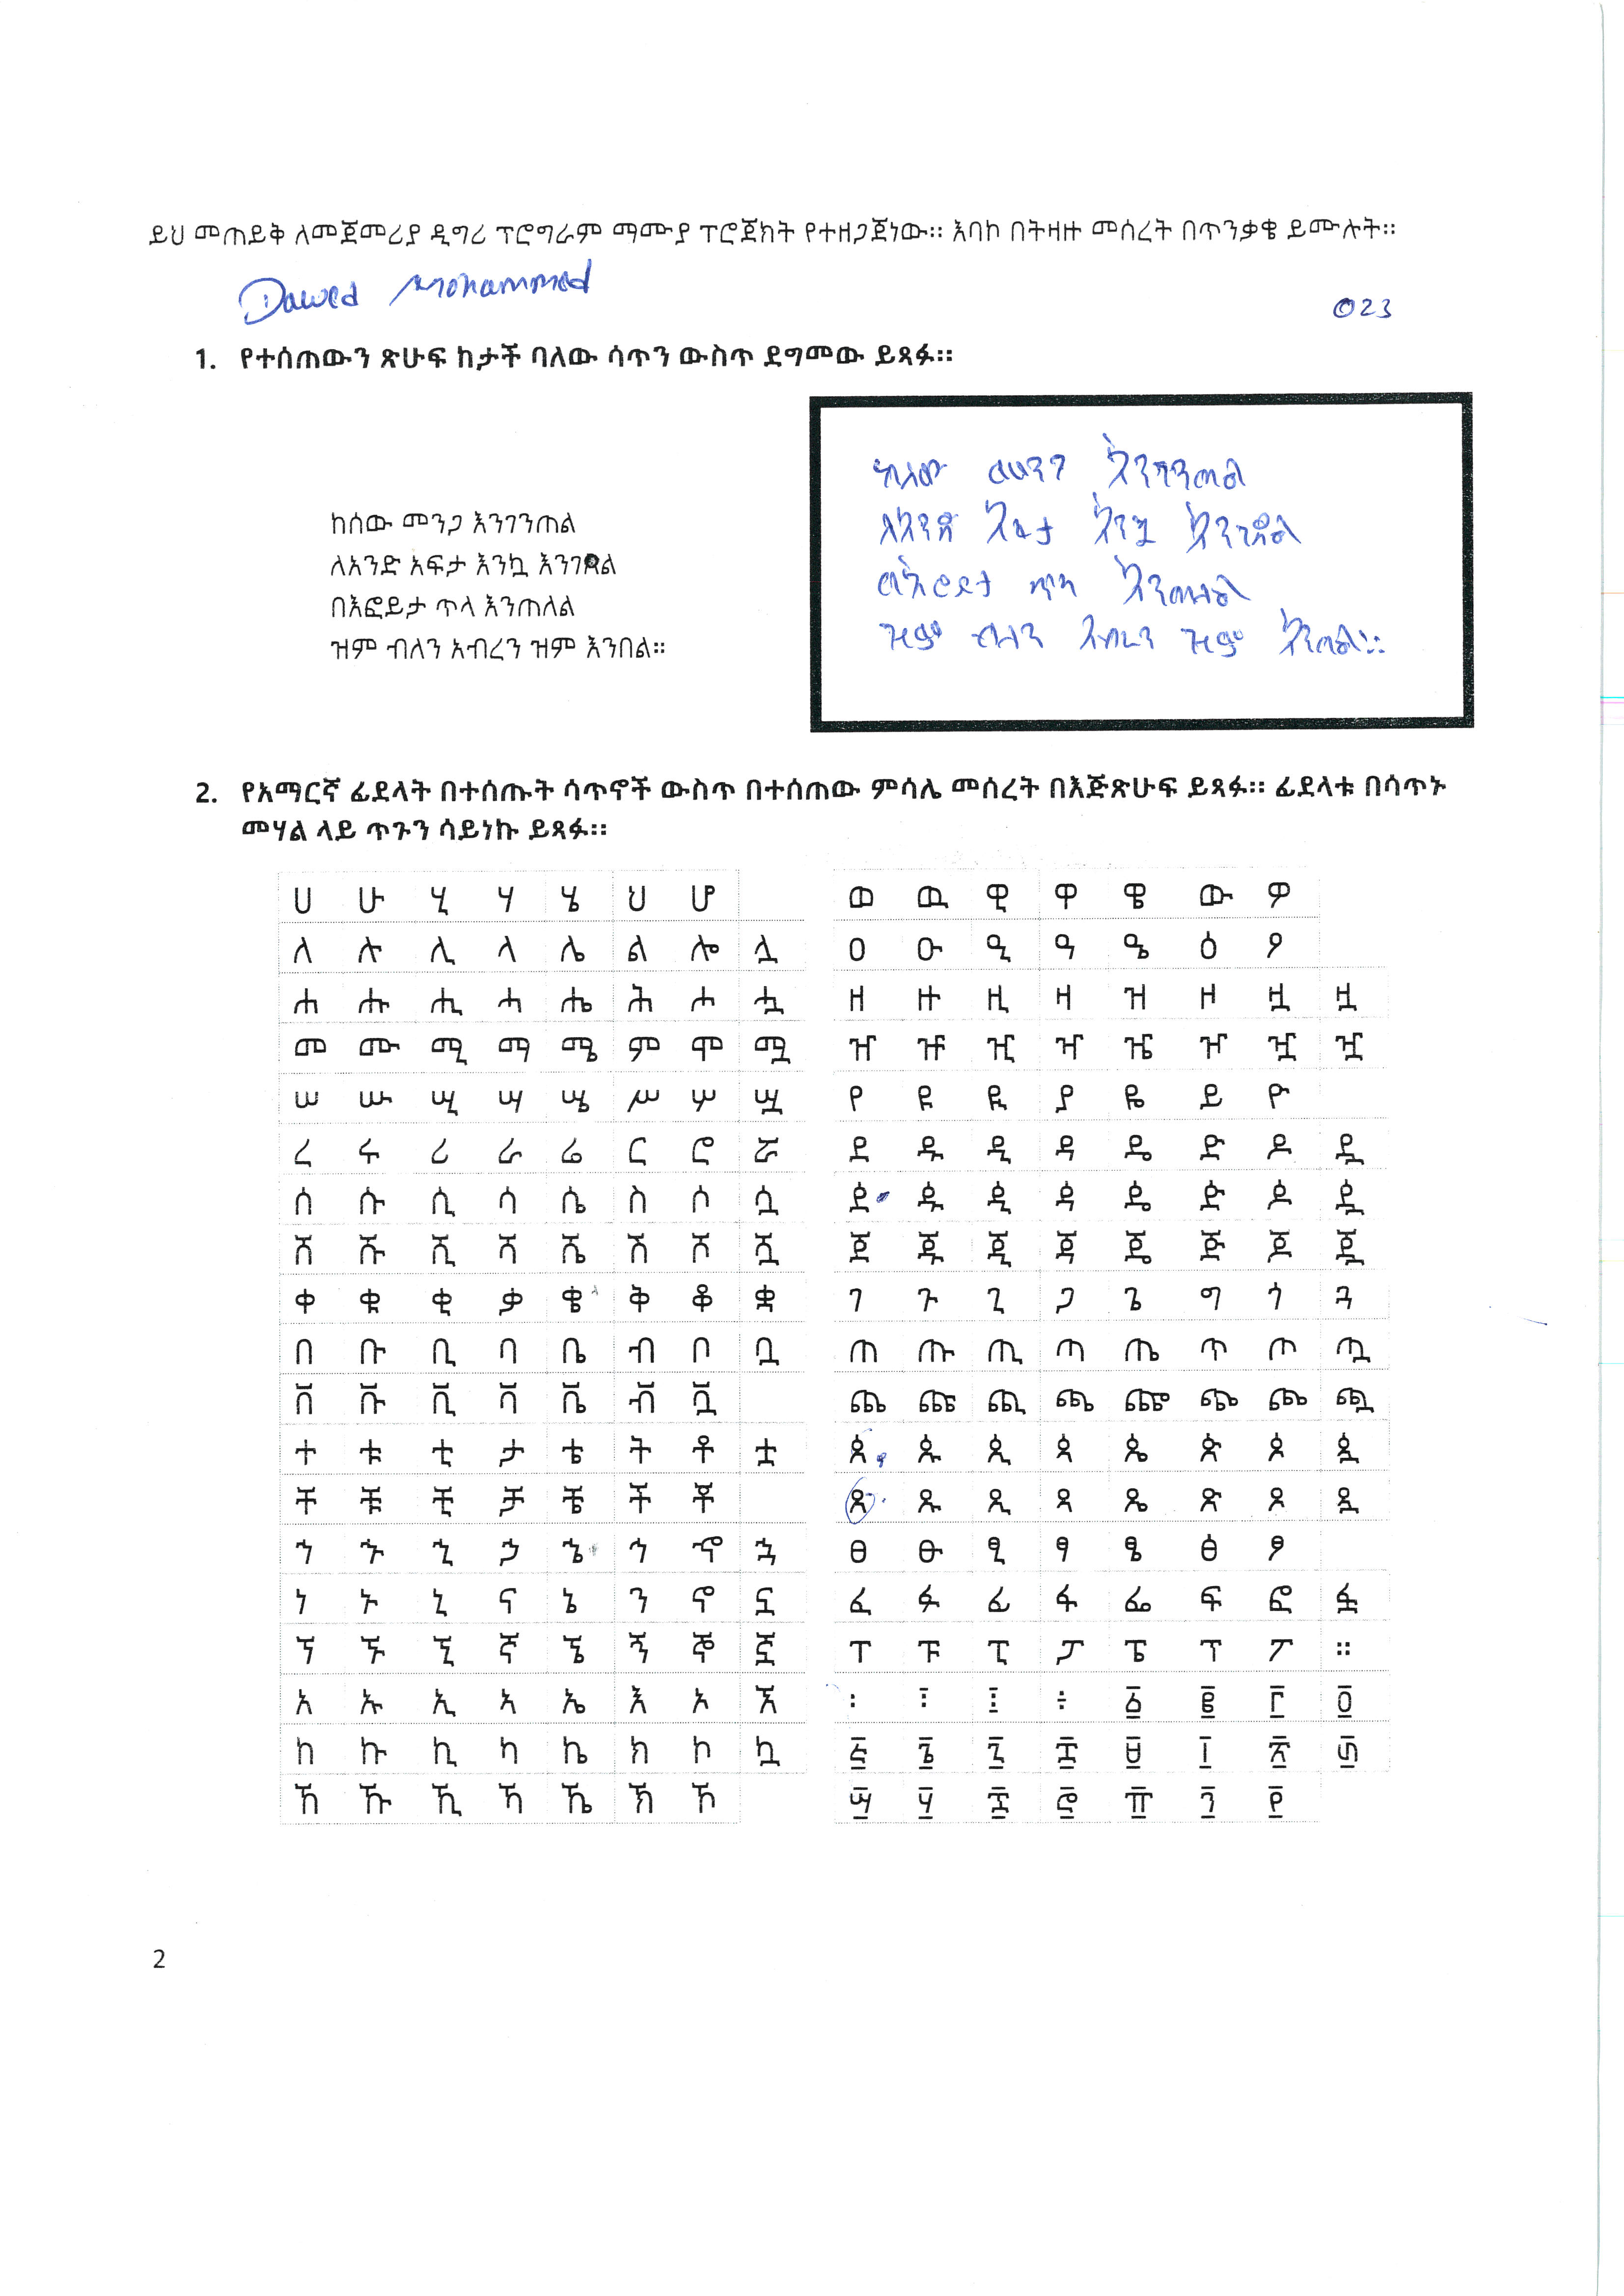 ይህ መጠይቅ ለመጀመሪያ ዲግሪ ፕሮግራም ማሙያ ፕሮጀክት የተዘጋጀነው። እባኮ በትዛዙ መሰረት በጥንቃቄ ይሙሉት።
Dawed Mohammed
023
1. የተሰጠውን ጽሁፍ ከታች ባለው ሳጥን ውስጥ ደግመው ይጻፉ።
ከሰው መንጋ እንገንጠል
ለአንድ አፍታ እንኳ እንገለል
በእፎይታ ጥላ እንጠለል
ዝም ብለን አብረን ዝም እንበል።
ከሰው መንጋ እንገንጠል
ለአንድ አፍታ እንኳ እንገለል
በእፎይታ ጥላ እንጠለል
ዝም ብለን አብረን ዝም እንበል።
2. የአማርኛ ፊደላት በተሰጡት ሳጥኖች ውስጥ በተሰጠው ምሳሌ መሰረት በእጅጽሁፍ ይጻፉ። ፊደላቱ በሳጥኑ
መሃል ላይ ጥጉን ሳይነኩ ይጻፉ።
ሀ ሁ ሂ ሃ ሄ ህ ሆ
ለ ሉ ሊ ላ ሌ ል ሎ ሏ
ሐ ሑ ሒ ሓ ሔ ሕ ሖ ሗ
መ ሙ ሚ ማ ሜ ም ሞ ሟ
ሠ ሡ ሢ ሣ ሤ ሥ ሦ ሧ
ረ ሩ ሪ ራ ሬ ር ሮ ሯ
ሰ ሱ ሲ ሳ ሴ ስ ሶ ሷ
ሸ ሹ ሺ ሻ ሼ ሽ ሾ ሿ
ቀ ቁ ቂ ቃ ቄ ቅ ቆ ቋ
በ ቡ ቢ ባ ቤ ብ ቦ ቧ
ቨ ቩ ቪ ቫ ቬ ቭ ቯ
ተ ቱ ቲ ታ ቴ ት ቶ ቷ
ቸ ቹ ቺ ቻ ቼ ች ቾ
ኀ ኁ ኂ ኃ ኄ ኅ ኆ ኋ
ነ ኑ ኒ ና ኔ ን ኖ ኗ
ኘ ኙ ኚ ኛ ኜ ኝ ኞ ኟ
አ ኡ ኢ ኣ ኤ እ ኦ ኧ
ከ ኩ ኪ ካ ኬ ክ ኮ ኳ
ኸ ኹ ኺ ኻ ኼ ኽ ኾ
ወ ዉ ዊ ዋ ዌ ው ዎ
ዐ ዑ ዒ ዓ ዔ ዕ ዖ
ዘ ዙ ዚ ዛ ዝ ዞ ዟ ዟ
ዠ ዡ ዢ ዣ ዤ ዦ ዧ ዧ
የ ዩ ዪ ያ ዬ ይ ዮ
ደ ዱ ዲ ዳ ዴ ድ ዶ ዷ
ዸ ዹ ዺ ዻ ዼ ዽ ዾ ዿ
ጀ ጁ ጂ ጃ ጄ ጅ ጆ ጇ
ገ ጉ ጊ ጋ ጌ ግ ጎ ጓ
ጠ ጡ ጢ ጣ ጤ ጥ ጦ ጧ
ጨ ጩ ጪ ጫ ጬ ጭ ጮ ጯ
ጰ ጱ ጲ ጳ ጴ ጵ ጶ ጷ
ጸ ጹ ጺ ጻ ጼ ጽ ጾ ጿ
ፀ ፁ ፂ ፃ ፄ ፅ ፆ
ፈ ፉ ፊ ፋ ፌ ፍ ፎ ፏ
ፐ ፑ ፒ ፓ ፔ ፕ ፖ ።
፡ ፤ ፧ ፥ ፩ ፪ ፫ ፬
፭ ፮ ፯ ፰ ፱ ፲ ፳ ፴
፵ ፶ ፷ ፸ ፹ ፺ ፻
2